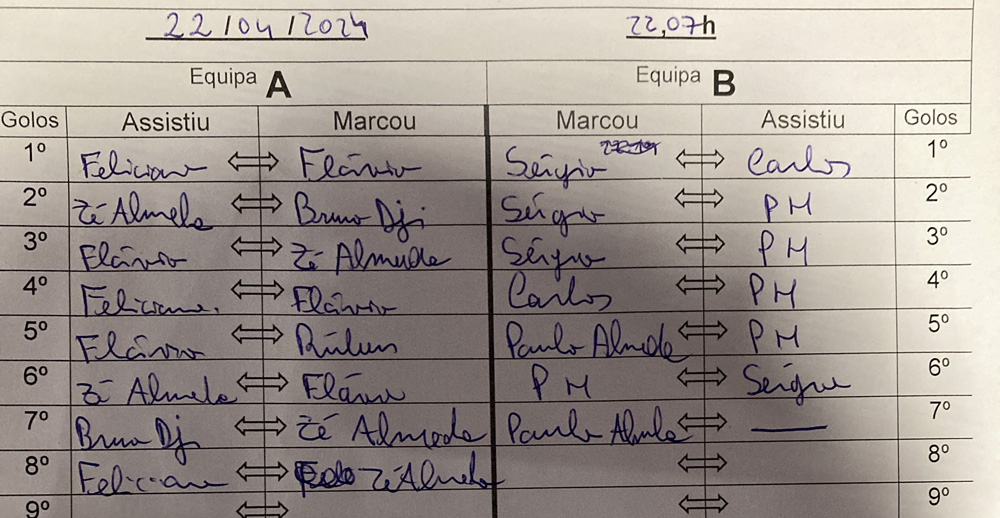 22/04/2024 22,07h
Equipa A Equipa B
Golos Assistiu Marcou Marcou Assistiu Golos
1º Feliciano Flávio Sérgio Carlos 1º
2º Zé Almeida Bruno Dji Sérgio PM 2º
3º Flávio Zé Almeida Sérgio PM 3º
4º Feliciano. Flávio Carlos PM 4º
5º Flávio Rúben Paulo Almeida PM 5º
6º Zé Almeida Flávio PM Sérgio 6º
7º Bruno Dji Zé Almeida Paulo Almeida — 7º
8º Feliciano Zé Almeida 8º
9º 9º